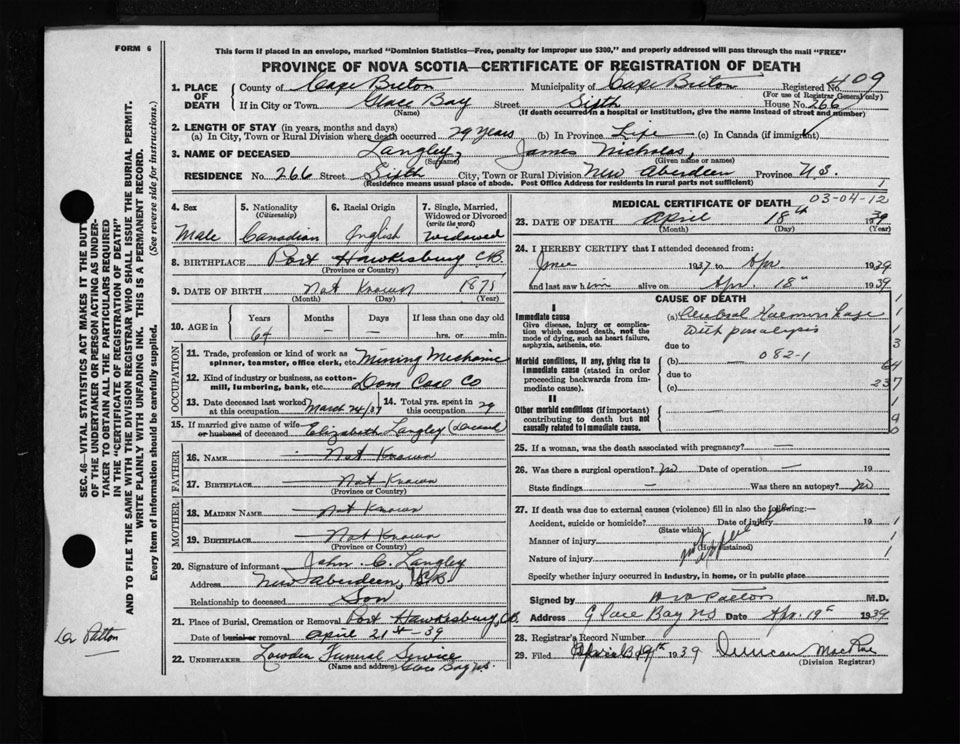 FORM 6
This form if placed in an envelope, marked "Dominion Statistics—Free, penalty for improper use $300," and properly addressed will pass through the mail "FREE"
PROVINCE OF NOVA SCOTIA—CERTIFICATE OF REGISTRATION OF DEATH
1. PLACE OF DEATH
County of Cape Breton Municipality of Cape Breton Registered No. 409
(For use of Registrar General only)
If in City or Town Glace Bay Street Sixth House No. 266
(Name) (If death occurred in a hospital or institution, give the name instead of street and number)
2. LENGTH OF STAY (in years, months and days)
(a) In City, Town or Rural Division where death occurred 29 years (b) In Province Life (c) In Canada (if immigrant)
3. NAME OF DECEASED Langley, James Nicholas,
(Surname) (Given name or names)
RESIDENCE No. 266 Street Sixth City, Town or Rural Division New Aberdeen Province N.S. 1
(Residence means usual place of abode. Post Office Address for residents in rural parts not sufficient)
4. Sex Male
5. Nationality (Citizenship) Canadian
6. Racial Origin English
7. Single, Married, Widowed or Divorced (write the word) Widowed
8. BIRTHPLACE Port Hawkesbury C.B.
(Province or Country)
9. DATE OF BIRTH Not Known
(Month) (Day) (Year)
10. AGE in Years Months Days If less than one day old
64 — — hrs. or min.
OCCUPATION
11. Trade, profession or kind of work as spinner, teamster, office clerk, etc. Mining Mechanic
12. Kind of industry or business, as cotton-mill, lumbering, bank, etc. Dom Coal Co
13. Date deceased last worked at this occupation March 24/37
14. Total yrs. spent in this occupation 29
15. If married give name of wife or husband of deceased Elizabeth Langley
FATHER
16. NAME Not Known
17. BIRTHPLACE Not Known
(Province or Country)
MOTHER
18. MAIDEN NAME Not Known
19. BIRTHPLACE Not Known
(Province or Country)
20. Signature of informant John C. Langley
Address New Aberdeen, C.B.
Relationship to deceased Son
21. Place of Burial, Cremation or Removal Port Hawkesbury, C.B.
Date of burial or removal April 21st-39
22. UNDERTAKER Lowden Funeral Service
(Name and address) Glace Bay N.S.
MEDICAL CERTIFICATE OF DEATH 03-04-12
23. DATE OF DEATH April 18th 1939
(Month) (Day) (Year)
24. I HEREBY CERTIFY that I attended deceased from:
June 1937 to Apr. 1939
and last saw him alive on Apr. 18th 1939
CAUSE OF DEATH
I
Immediate cause
Give disease, injury or complication which caused death, not the mode of dying, such as heart failure, asphyxia, asthenia, etc.
(a) Cerebral Haemorrhage
with paralysis
due to
Morbid conditions, if any, giving rise to immediate cause (stated in order proceeding backwards from immediate cause).
(b) 082-1
due to
(c)
II
Other morbid conditions (if important) contributing to death but not causally related to immediate cause.
1
1
3
64
237
1
9
0
25. If a woman, was the death associated with pregnancy? —
26. Was there a surgical operation? no Date of operation — 19
State findings — Was there an autopsy? no
27. If death was due to external causes (violence) fill in also the following:—
Accident, suicide or homicide? Date of injury 19 1
(State which)
Manner of injury 1
(How sustained)
Nature of injury 1
Specify whether injury occurred in industry, in home, or in public place
Signed by Patton M.D.
Address Glace Bay NS Date Apr. 19th 1939
28. Registrar's Record Number
29. Filed April 19th 1939 Duncan MacRae
(Division Registrar)
SEC. 46—VITAL STATISTICS ACT MAKES IT THE DUTY
OF THE UNDERTAKER OR PERSON ACTING AS UNDER-
TAKER TO OBTAIN ALL THE PARTICULARS REQUIRED
IN THE "CERTIFICATE OF REGISTRATION OF DEATH"
AND TO FILE THE SAME WITH THE DIVISION REGISTRAR WHO SHALL ISSUE THE BURIAL PERMIT.
WRITE PLAINLY WITH UNFADING INK. THIS IS A PERMANENT RECORD.
Every item of information should be carefully supplied. (See reverse side for instructions.)
Dr Patton